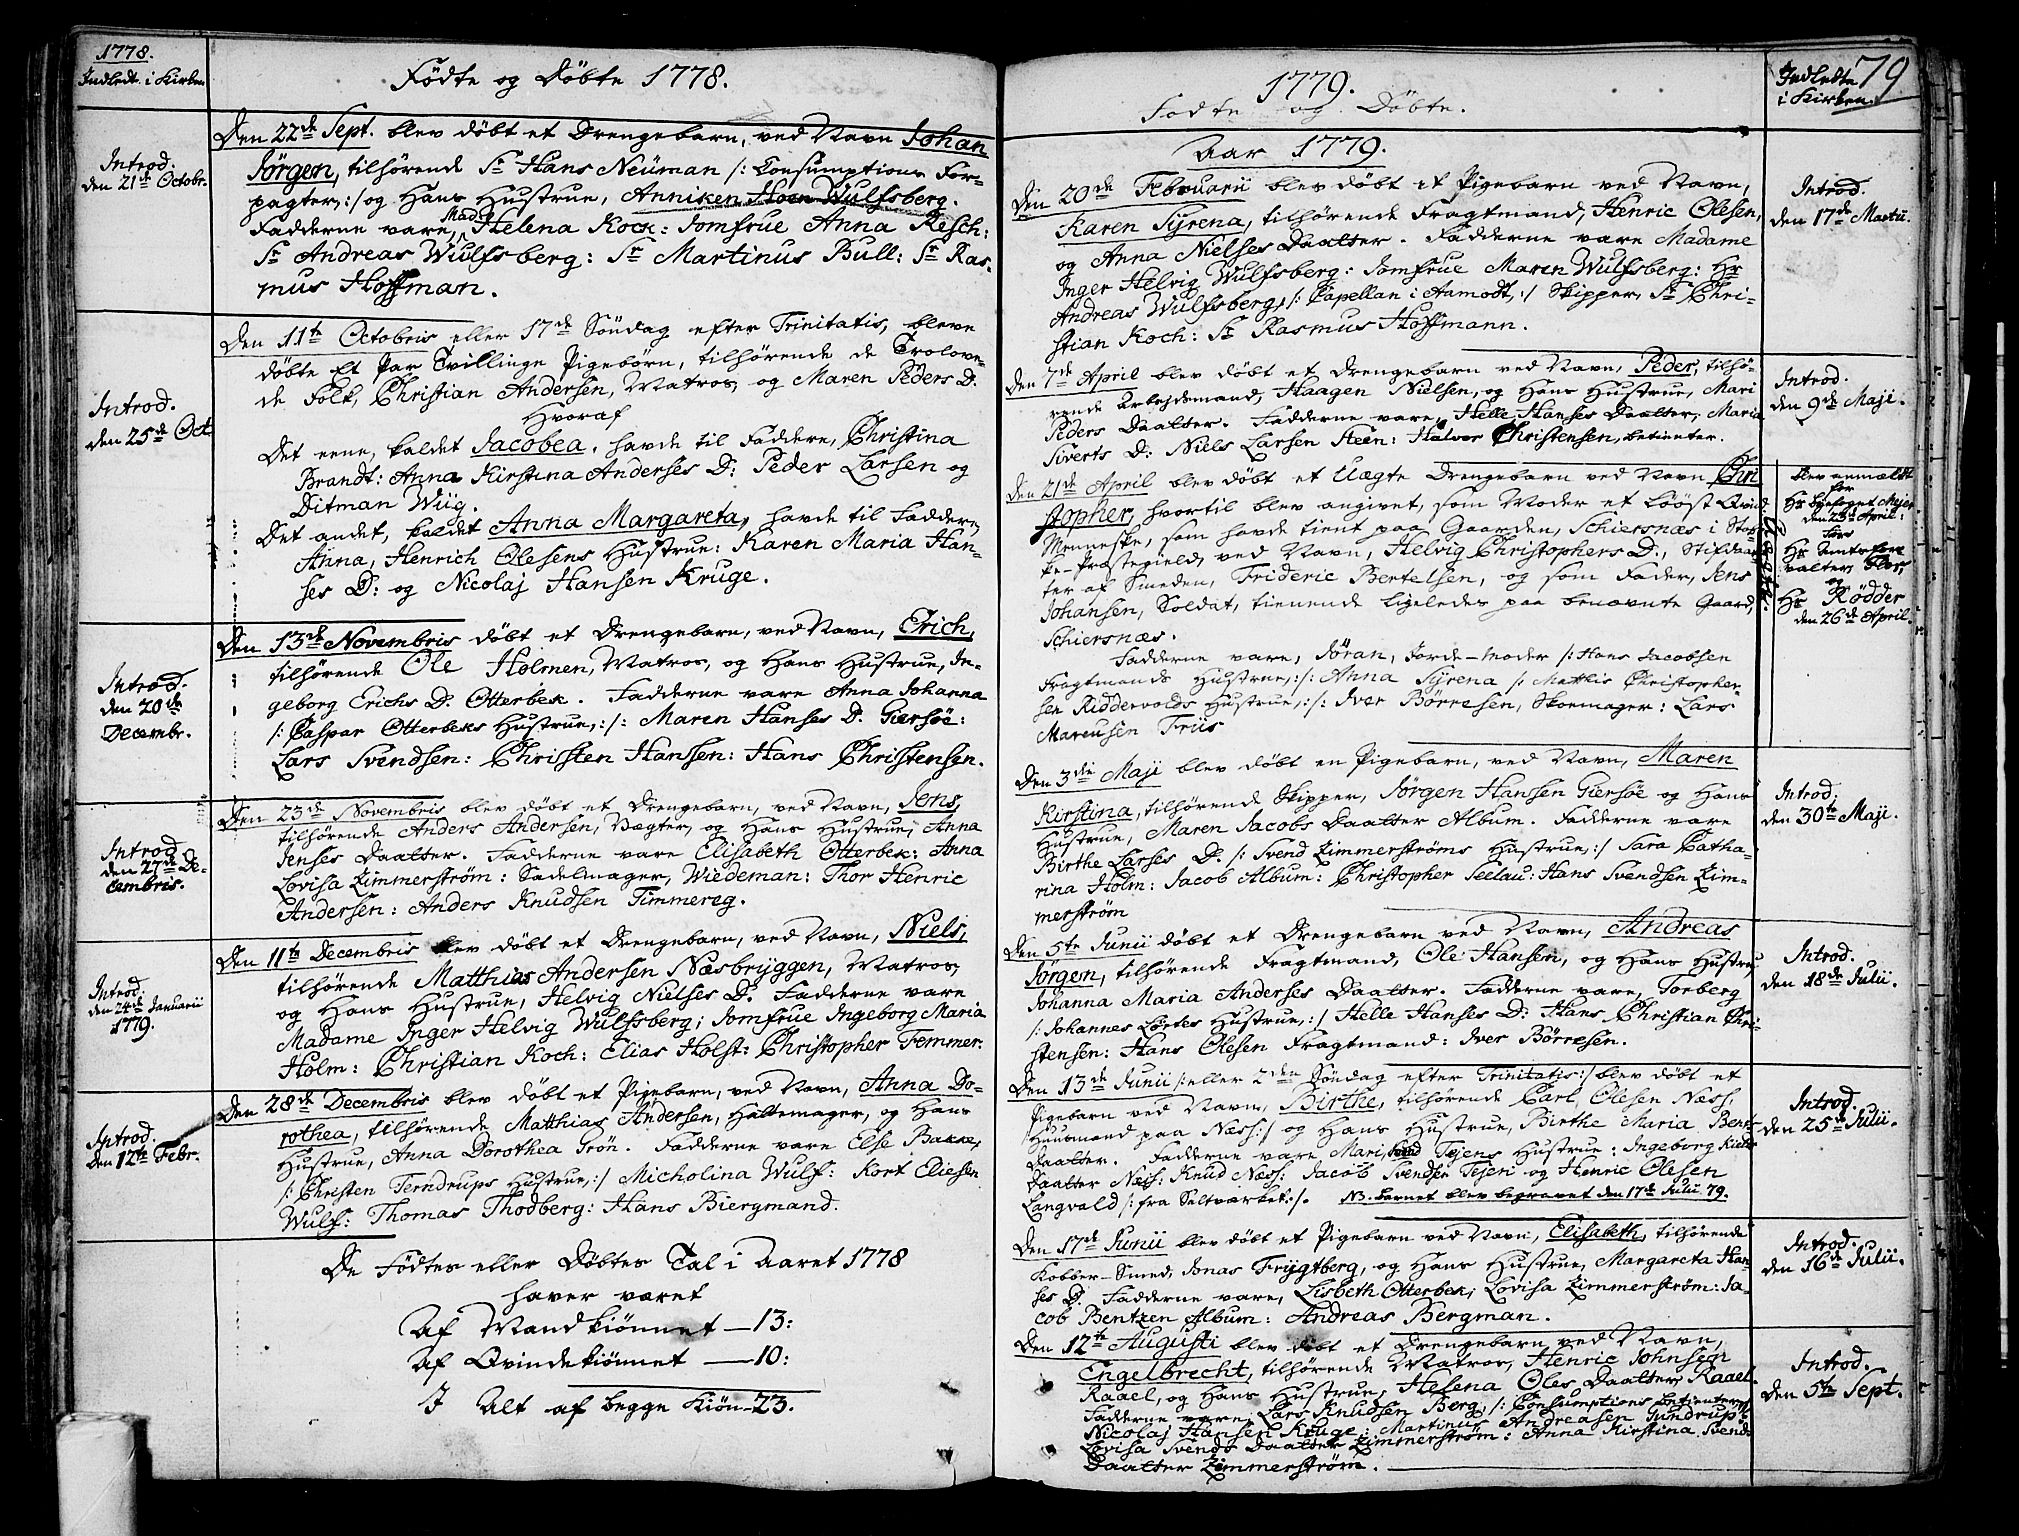 1778.
Indledt. i Kirken
Fødte og Døbte 1778.
Introd.
den 21de Octobr.
Den 22de Sept. blev døbt et Drengebarn, ved Navn Johan
Jørgen, tilhørende Sr Hans Neuman /: Consumptions For-
pagter, :/ og Hans Hustrue, Anniken Hoen Wulfsberg.
Fadderne vare, Mad. Helena Kock: Jomfrue Anna Resch:
Sr Andreas Wulfsberg: Sr Martinus Bull: Sr Ras-
mus Hoffman.
Introd.
den 25de Oct.
Den 11te Octobris eller 17de Søndag efter Trinitatis, bleve
døbte Et Par Tvillinge Pigebørn, tilhørende de Trolove-
de Folk, Christian Andersen, Matros, og Maren Peders D.
Hvoraf
Det eene, kaldet Jacobea, havde til Faddere, Christina
Brandt: Anna Kirstina Anderses D: Peder Larsen og
Ditman Wiig.
Det andet, kaldet Anna Margareta, havde til Faddere,
Anna, Henrich Olesens Hustrue: Karen Maria Han-
ses D: og Nicolaj Hansen Kruge.
Introd.
den 20de
Decembr.
Den 13de Novembris døbt et Drengebarn, ved Navn, Erich,
tilhørende Ole Holmen, Matros, og Hans Hustrue, In-
geborg Erichs D. Otterbek. Fadderne vare Anna Johanna
/: Caspar Otterbeks Hustrue, :/: Maren Hanses D. Giersøe:
Lars Svendsen: Christen Hansen: Hans Christensen.
Introd.
den 27de De-
cembris.
Den 23de Novembris blev døbt et Drengebarn, ved Navn, Jens,
tilhørende Anders Andersen, Vægter, og Hans Hustrue, Anna
Jenses Daatter. Fadderne vare Elisabeth Otterbek: Anna
Lovisa Zimmerstrøm: Sadelmager, Wiedeman: Thor Henric
Andersen: Anders Knudsen Timmereg.
Introd.
den 24de Januarii
1779.
Den 11te Decembris blev døbt et Drengebarn, ved Navn, Niels,
tilhørende Matthias Andersen Næsbryggen, Matros,
og Hans Hustrue, Helvig Nielses D. Fadderne vare
Madame Inger Helvig Wulfsberg; Jomfrue Ingeborg Maria
Holm: Christian Koch: Elias Holst: Christopher Femmer.
Introd.
den 12te Febr.
Den 28de Decembris blev døbt et Pigebarn, ved Navn, Anna Do-
rothea, tilhørende Matthias Andersen, Hattemager, og Hans
Hustrue, Anna Dorothea Grøn. Fadderne vare Else Bakke,
/: Christen Terndrups Hustrue, :/ Micholina Wulf: Kort Eliesen
Wulf: Thomas Thodberg: Hans Biergmand.
De Fødtes eller Døbtes Tal i Aaret 1778
haver været
Af Mandkiønnet — 13:
Af Qvindekiønnet — 10:
I Alt af begge Kiøn — 23.
1779.
Fødte og Døbte.
Indledte
i Kirken.
79
Aar 1779.
Den 20de Februarii blev døbt et Pigebarn ved Navn,
Karen Syrena, tilhørende Fragtmand, Henric Olesen,
og Anna Nielses Daatter. Fadderne vare Madame
Inger Helvig Wulfsberg: Jomfrue Maren Wulfsberg: Hr
Andreas Wulfsberg, /: Capellan i Aamodt, :/ Skipper, Sr Chri-
stian Koch: Sr Rasmus Hoffmann.
Introd.
den 17de Martii.
Den 7de April blev døbt et Drengebarn ved Navn, Peder, tilhø-
rende Arbejdsmand, Haagen Nielsen, og Hans Hustrue, Mari
Peders Daatter. Fadderne vare, Helle Hanses Daatter, Maria
Siverts D: Niels Larsen Steen: Halvor Christensen, betienter.
Introd.
den 9de Maji.
Den 21de April blev døbt et Uægte Drengebarn ved Navn Chri
stopher, hvortil blev angivet, som Moder et Løøst Qvind-
Menneske, som havde tient paa Gaarden, Schiersnæs i Stok-
ke-Præstegield, ved Navn, Helvig Christophers D., Stifdaat-
ter af Smeden, Frideric Bertelsen, og som Fader, Jens
Johansen, Soldat, tienende Ligeledes paa benævnte Gaard,
Schiersnæs.
Fadderne vare, Jøran, Jorde-Moder /: Hans Jacobsen
Fragtmands Hustrue, :/: Anna Syrena /: Mathis Christopher-
sen Riddervolds Hustrue, :/: Iver Børresen, Skomager: Lars
Marcusen Friis
Uægte.
Blev anmeldt
for
Hr
den 25de April:
Hr Amtsfor-
valter,
og
Hr Rødder
den 26de April.
Den 3die Maji blev døbt en Pigebarn, ved Navn, Maren
Kirstina, tilhørende Skipper, Jørgen Hansen Giersøe og Hans
Hustrue, Maren Jacobs Daatter Album. Fadderne vare
Birthe Larses D. /: Svend Zimmerstrøms Hustrue, :/ Sara Catha-
rina Holm: Jacob Album: Christopher Seelau: Hans Svendsen Zim-
merstrøm
Introd.
den 30te Maji.
Den 5te Junii døbt et Drengebarn ved Navn, Andreas
Jørgen, tilhørende Fragtmand, Ole Hansen, og Hans Hustru
Johanna Maria Anderses Daatter. Fadderne vare, Torberg
/: Johannes Lortes Hustrue, :/ Helle Hanses D: Hans Christian Chri-
stensen: Hans Olesen Fragtmand: Iver Børresen.
Introd.
den 18de Julii.
Den 13de Junii /: eller 2den Søndag efter Trinitatis :/ blev døbt et
Pigebarn ved Navn, Birthe, tilhørende Carl Olesen Næss,
Huusmand paa Næss :/ og Hans Hustrue, Birthe Maria Bents
Daatter. Fadderne vare Mari, Svend Tejens Hustrue: Ingeborg
Daatter Næss: Knud Næss: Jacob Svendsen Tejen og Henric Olesen
Langvald /: fra Saltværket :/. NB. barnet blev begravet den 17de Julii 79.
Introd.
den 25de Julii.
Den 17de Junii blev døbt et Pigebarn ved Navn, Elisabeth, tilhørende
Kobber-Smed, Jonas Frygtberg, og Hans Hustrue, Margareta Han-
ses D. Fadderne vare, Lisbeth Otterbek; Lovisa Zimmerstrøm: Ja-
cob Bentzen Album: Andreas Bergman.
Introd.
den 16de Julii.
Den 12te Augusti blev døbt et Drengebarn ved Navn,
Engelbrecht, tilhørende Matros, Henric Johnsen
Raael, og Hans Hustrue, Helena Oles Daatter Raael.
Fadderne vare, Lars Knudsen Berg, /: Consumptions betienter :/
Nicolaj Hansen Kruge: Martinus Andreasen Gundrup:
Lovisa Svends Daatter Zimmerstrøm: Anna Kirstina Svends
Daatter Zimmerstrøm.
Introd.
den 5te Sept.